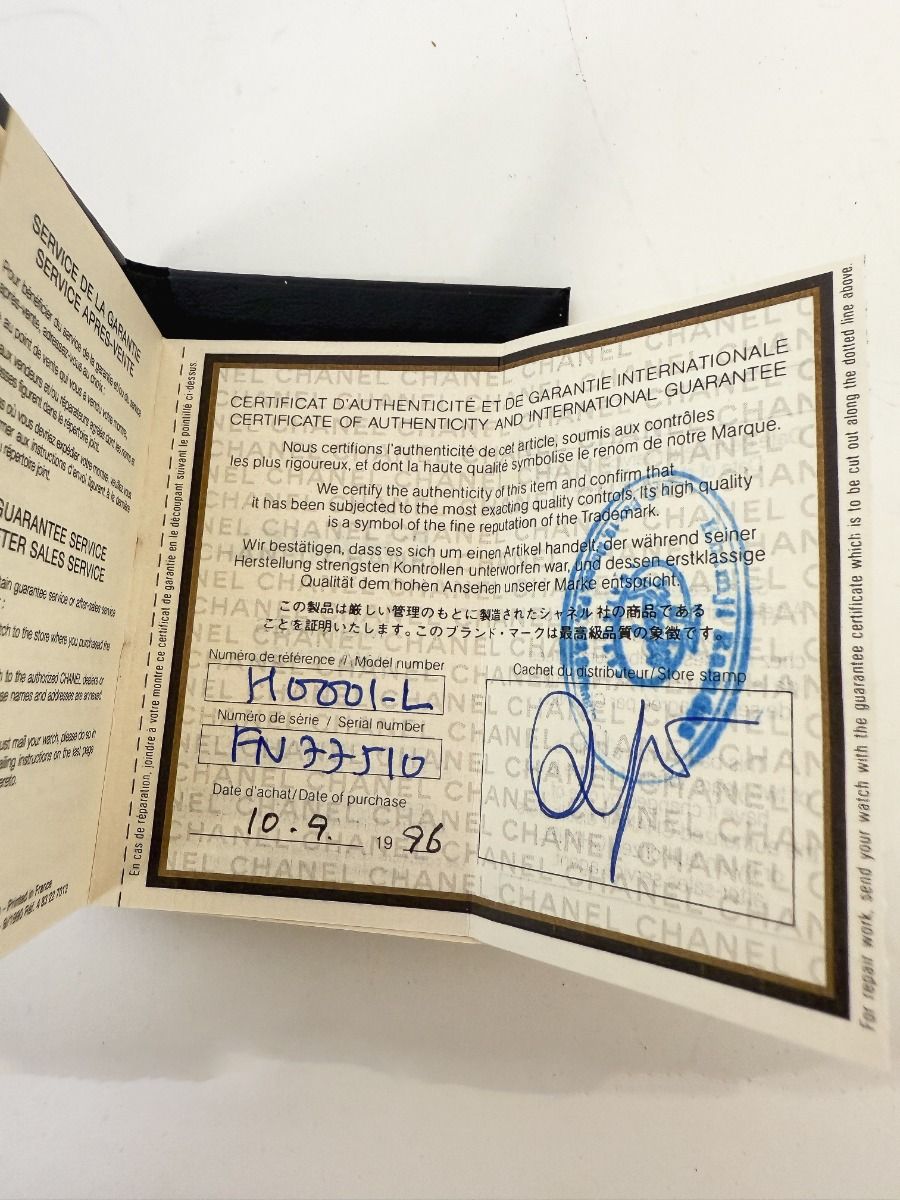 SERVICE DE LA GARANTIE
SERVICE APRES-VENTE
Pour bénéficier du service de la garantie et du service
après-vente, adressez-vous au choix:
au point de vente qui vous a vendu votre montre.
GUARANTEE SERVICE
TER SALES SERVICE
tain guarantee service or after-sales service
tch to the store where you purchased the
to the authorized CHANEL dealers or
se names and addresses are annexed
ust mail your watch, please do so in
ailing instructions on the last page
ereto.
Printed in France
En cas de réparation, joindre à votre montre ce certificat de garantie en le découpant suivant le pointillé ci-dessus.
CERTIFICAT D'AUTHENTICITÉ ET DE GARANTIE INTERNATIONALE
CERTIFICATE OF AUTHENTICITY AND INTERNATIONAL GUARANTEE
Nous certifions l'authenticité de cet article, soumis aux contrôles
les plus rigoureux, et dont la haute qualité symbolise le renom de notre Marque.
We certify the authenticity of this item and confirm that
it has been subjected to the most exacting quality controls. Its high quality
is a symbol of the fine reputation of the Trademark.
Wir bestätigen, dass es sich um einen Artikel handelt, der während seiner
Herstellung strengsten Kontrollen unterworfen war, und dessen erstklassige
Qualität dem hohen Ansehen unserer Marke entspricht.
この製品は厳しい管理のもとに製造されたシャネル社の商品である
ことを証明いたします。このブランド・マークは最高級品質の象徴です。
Numéro de référence / Model number
H0001-L
Numéro de série / Serial number
FN77510
Date d'achat/Date of purchase
10.9. 1996
Cachet du distributeur/Store stamp
For repair work, send your watch with the guarantee certificate which is to be cut out along the dotted line above.